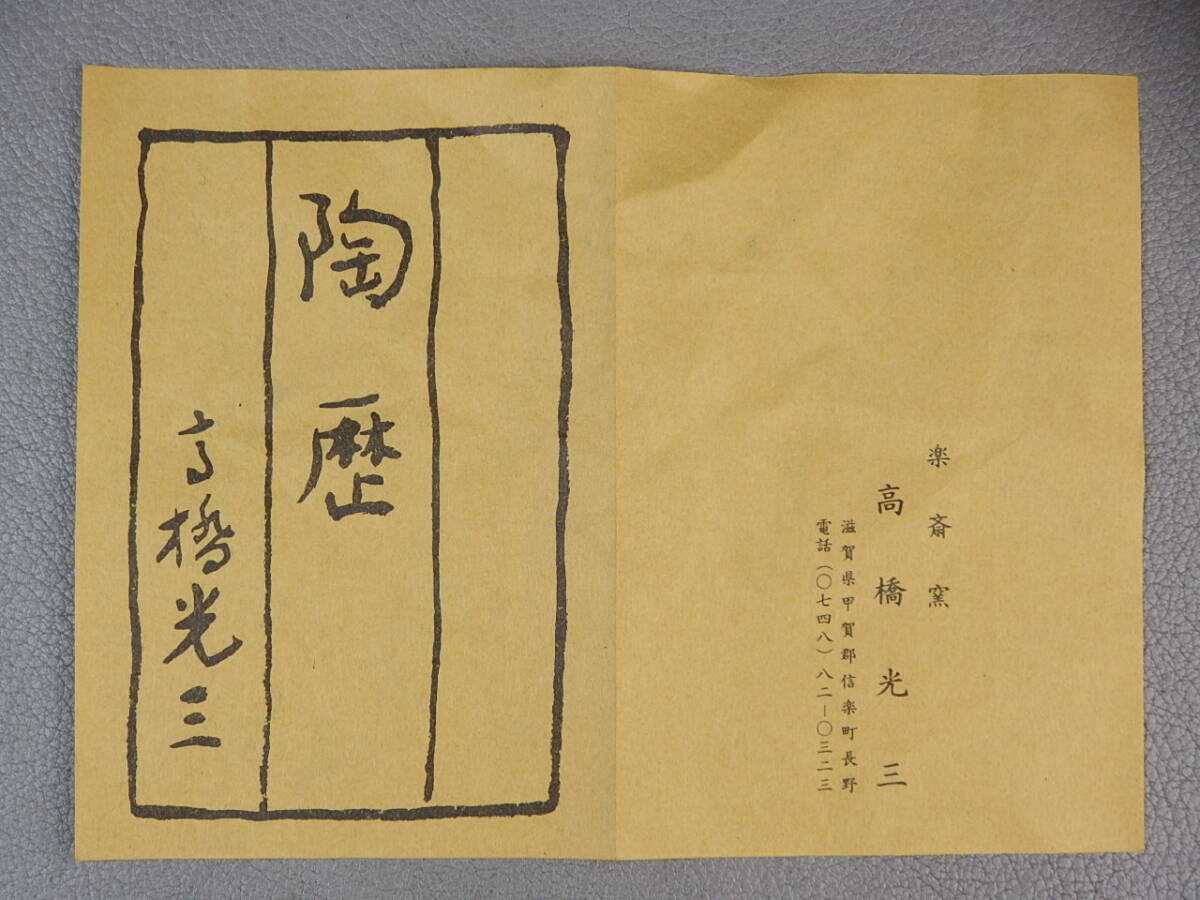 陶歴
高橋光三
楽斎窯
高橋光三
滋賀県甲賀郡信楽町長野
電話(〇七四八)八二-〇三二三